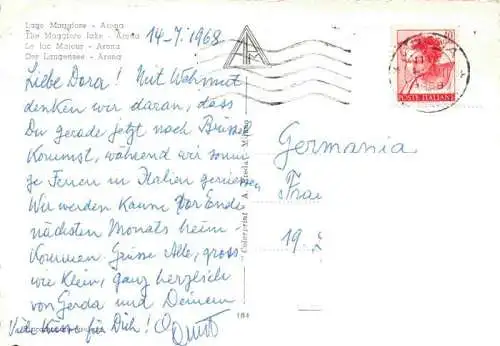 Lago Maggiore - Arona
The Maggiore lake - Arona
Le lac Majeur - Arona
Der Langensee - Arona
14-7.1968
Liebe Dora! Mit Wehmut
denken wir daran, dass
Du gerade jetzt nach
kommst, während wir sonni-
ge Ferien in Italien geniessen
Wir werden kaum vor Ende
nächsten Monats heim-
kommen. Grüsse Alle, gross
wie klein, ganz herzlich
von Gerda und Deinem
Viele Küsse für Dich!
184
POSTE ITALIANE
Germania
Frau
19.